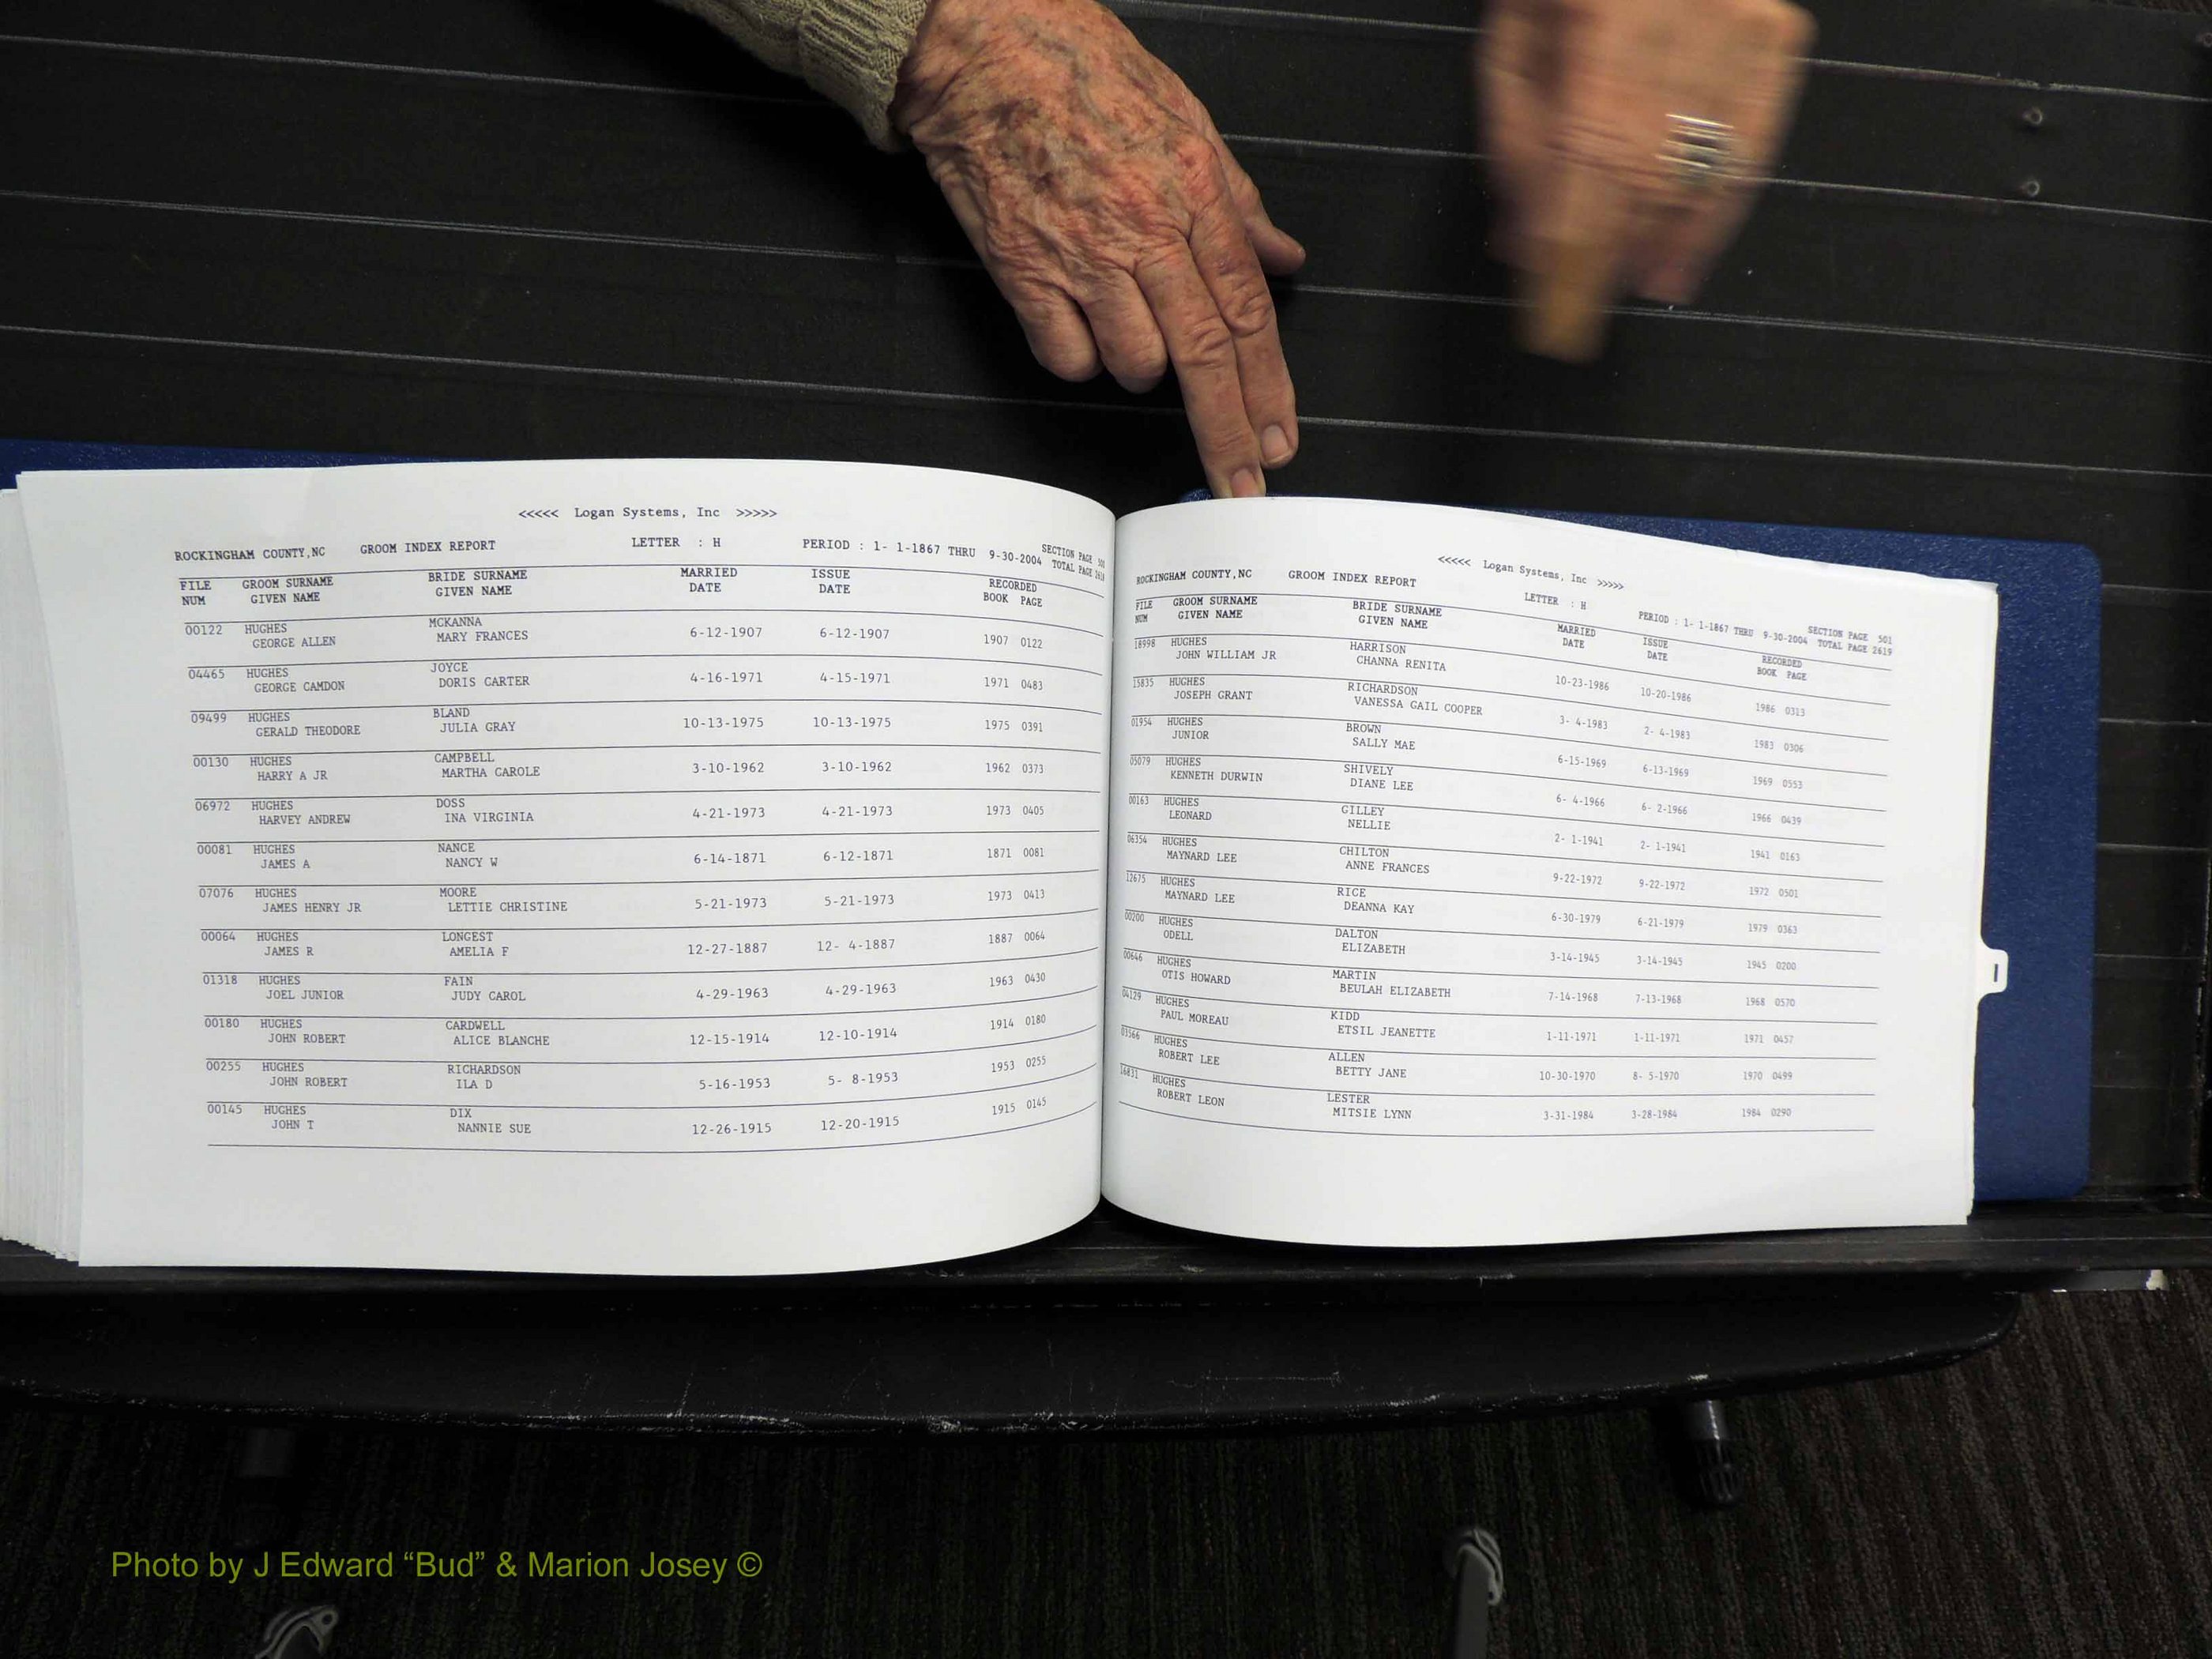 <<<<< Logan Systems, Inc >>>>>
ROCKINGHAM COUNTY,NC GROOM INDEX REPORT LETTER : H PERIOD : 1- 1-1867 THRU 9-30-2004 SECTION PAGE
TOTAL PAGE
FILE GROOM SURNAME BRIDE SURNAME MARRIED ISSUE RECORDED
NUM GIVEN NAME GIVEN NAME DATE DATE BOOK PAGE
00122 HUGHES MCKANNA
GEORGE ALLEN MARY FRANCES 6-12-1907 6-12-1907 1907 0122
04465 HUGHES JOYCE
GEORGE CAMDON DORIS CARTER 4-16-1971 4-15-1971 1971 0483
09499 HUGHES BLAND
GERALD THEODORE JULIA GRAY 10-13-1975 10-13-1975 1975 0391
00130 HUGHES CAMPBELL
HARRY A JR MARTHA CAROLE 3-10-1962 3-10-1962 1962 0373
06972 HUGHES DOSS
HARVEY ANDREW INA VIRGINIA 4-21-1973 4-21-1973 1973 0405
00081 HUGHES NANCE
JAMES A NANCY W 6-14-1871 6-12-1871 1871 0081
07076 HUGHES MOORE
JAMES HENRY JR LETTIE CHRISTINE 5-21-1973 5-21-1973 1973 0413
00064 HUGHES LONGEST
JAMES R AMELIA F 12-27-1887 12- 4-1887 1887 0064
01318 HUGHES FAIN
JOEL JUNIOR JUDY CAROL 4-29-1963 4-29-1963 1963 0430
00180 HUGHES CARDWELL
JOHN ROBERT ALICE BLANCHE 12-15-1914 12-10-1914 1914 0180
00255 HUGHES RICHARDSON
JOHN ROBERT ILA D 5-16-1953 5- 8-1953 1953 0255
00145 HUGHES DIX
JOHN T NANNIE SUE 12-26-1915 12-20-1915 1915 0145
<<<<< Logan Systems, Inc >>>>>
ROCKINGHAM COUNTY,NC GROOM INDEX REPORT LETTER : H PERIOD : 1- 1-1867 THRU 9-30-2004 SECTION PAGE 501
TOTAL PAGE 2619
FILE GROOM SURNAME BRIDE SURNAME MARRIED ISSUE RECORDED
NUM GIVEN NAME GIVEN NAME DATE DATE BOOK PAGE
18998 HUGHES HARRISON
JOHN WILLIAM JR CHANNA RENITA 10-23-1986 10-20-1986 1986 0313
15835 HUGHES RICHARDSON
JOSEPH GRANT VANESSA GAIL COOPER 3- 4-1983 2- 4-1983 1983 0306
01954 HUGHES BROWN
JUNIOR SALLY MAE 6-15-1969 6-13-1969 1969 0553
05079 HUGHES SHIVELY
KENNETH DURWIN DIANE LEE 6- 4-1966 6- 2-1966 1966 0439
00163 HUGHES GILLEY
LEONARD NELLIE 2- 1-1941 2- 1-1941 1941 0163
06354 HUGHES CHILTON
MAYNARD LEE ANNE FRANCES 9-22-1972 9-22-1972 1972 0501
12675 HUGHES RICE
MAYNARD LEE DEANNA KAY 6-30-1979 6-21-1979 1979 0363
00200 HUGHES DALTON
ODELL ELIZABETH 3-14-1945 3-14-1945 1945 0200
00646 HUGHES MARTIN
OTIS HOWARD BEULAH ELIZABETH 7-14-1968 7-13-1968 1968 0570
04129 HUGHES KIDD
PAUL MOREAU ETSIL JEANETTE 1-11-1971 1-11-1971 1971 0457
03566 HUGHES ALLEN
ROBERT LEE BETTY JANE 10-30-1970 8- 5-1970 1970 0499
16831 HUGHES LESTER
ROBERT LEON MITSIE LYNN 3-31-1984 3-28-1984 1984 0290
I
Photo by J Edward “Bud” & Marion Josey ©